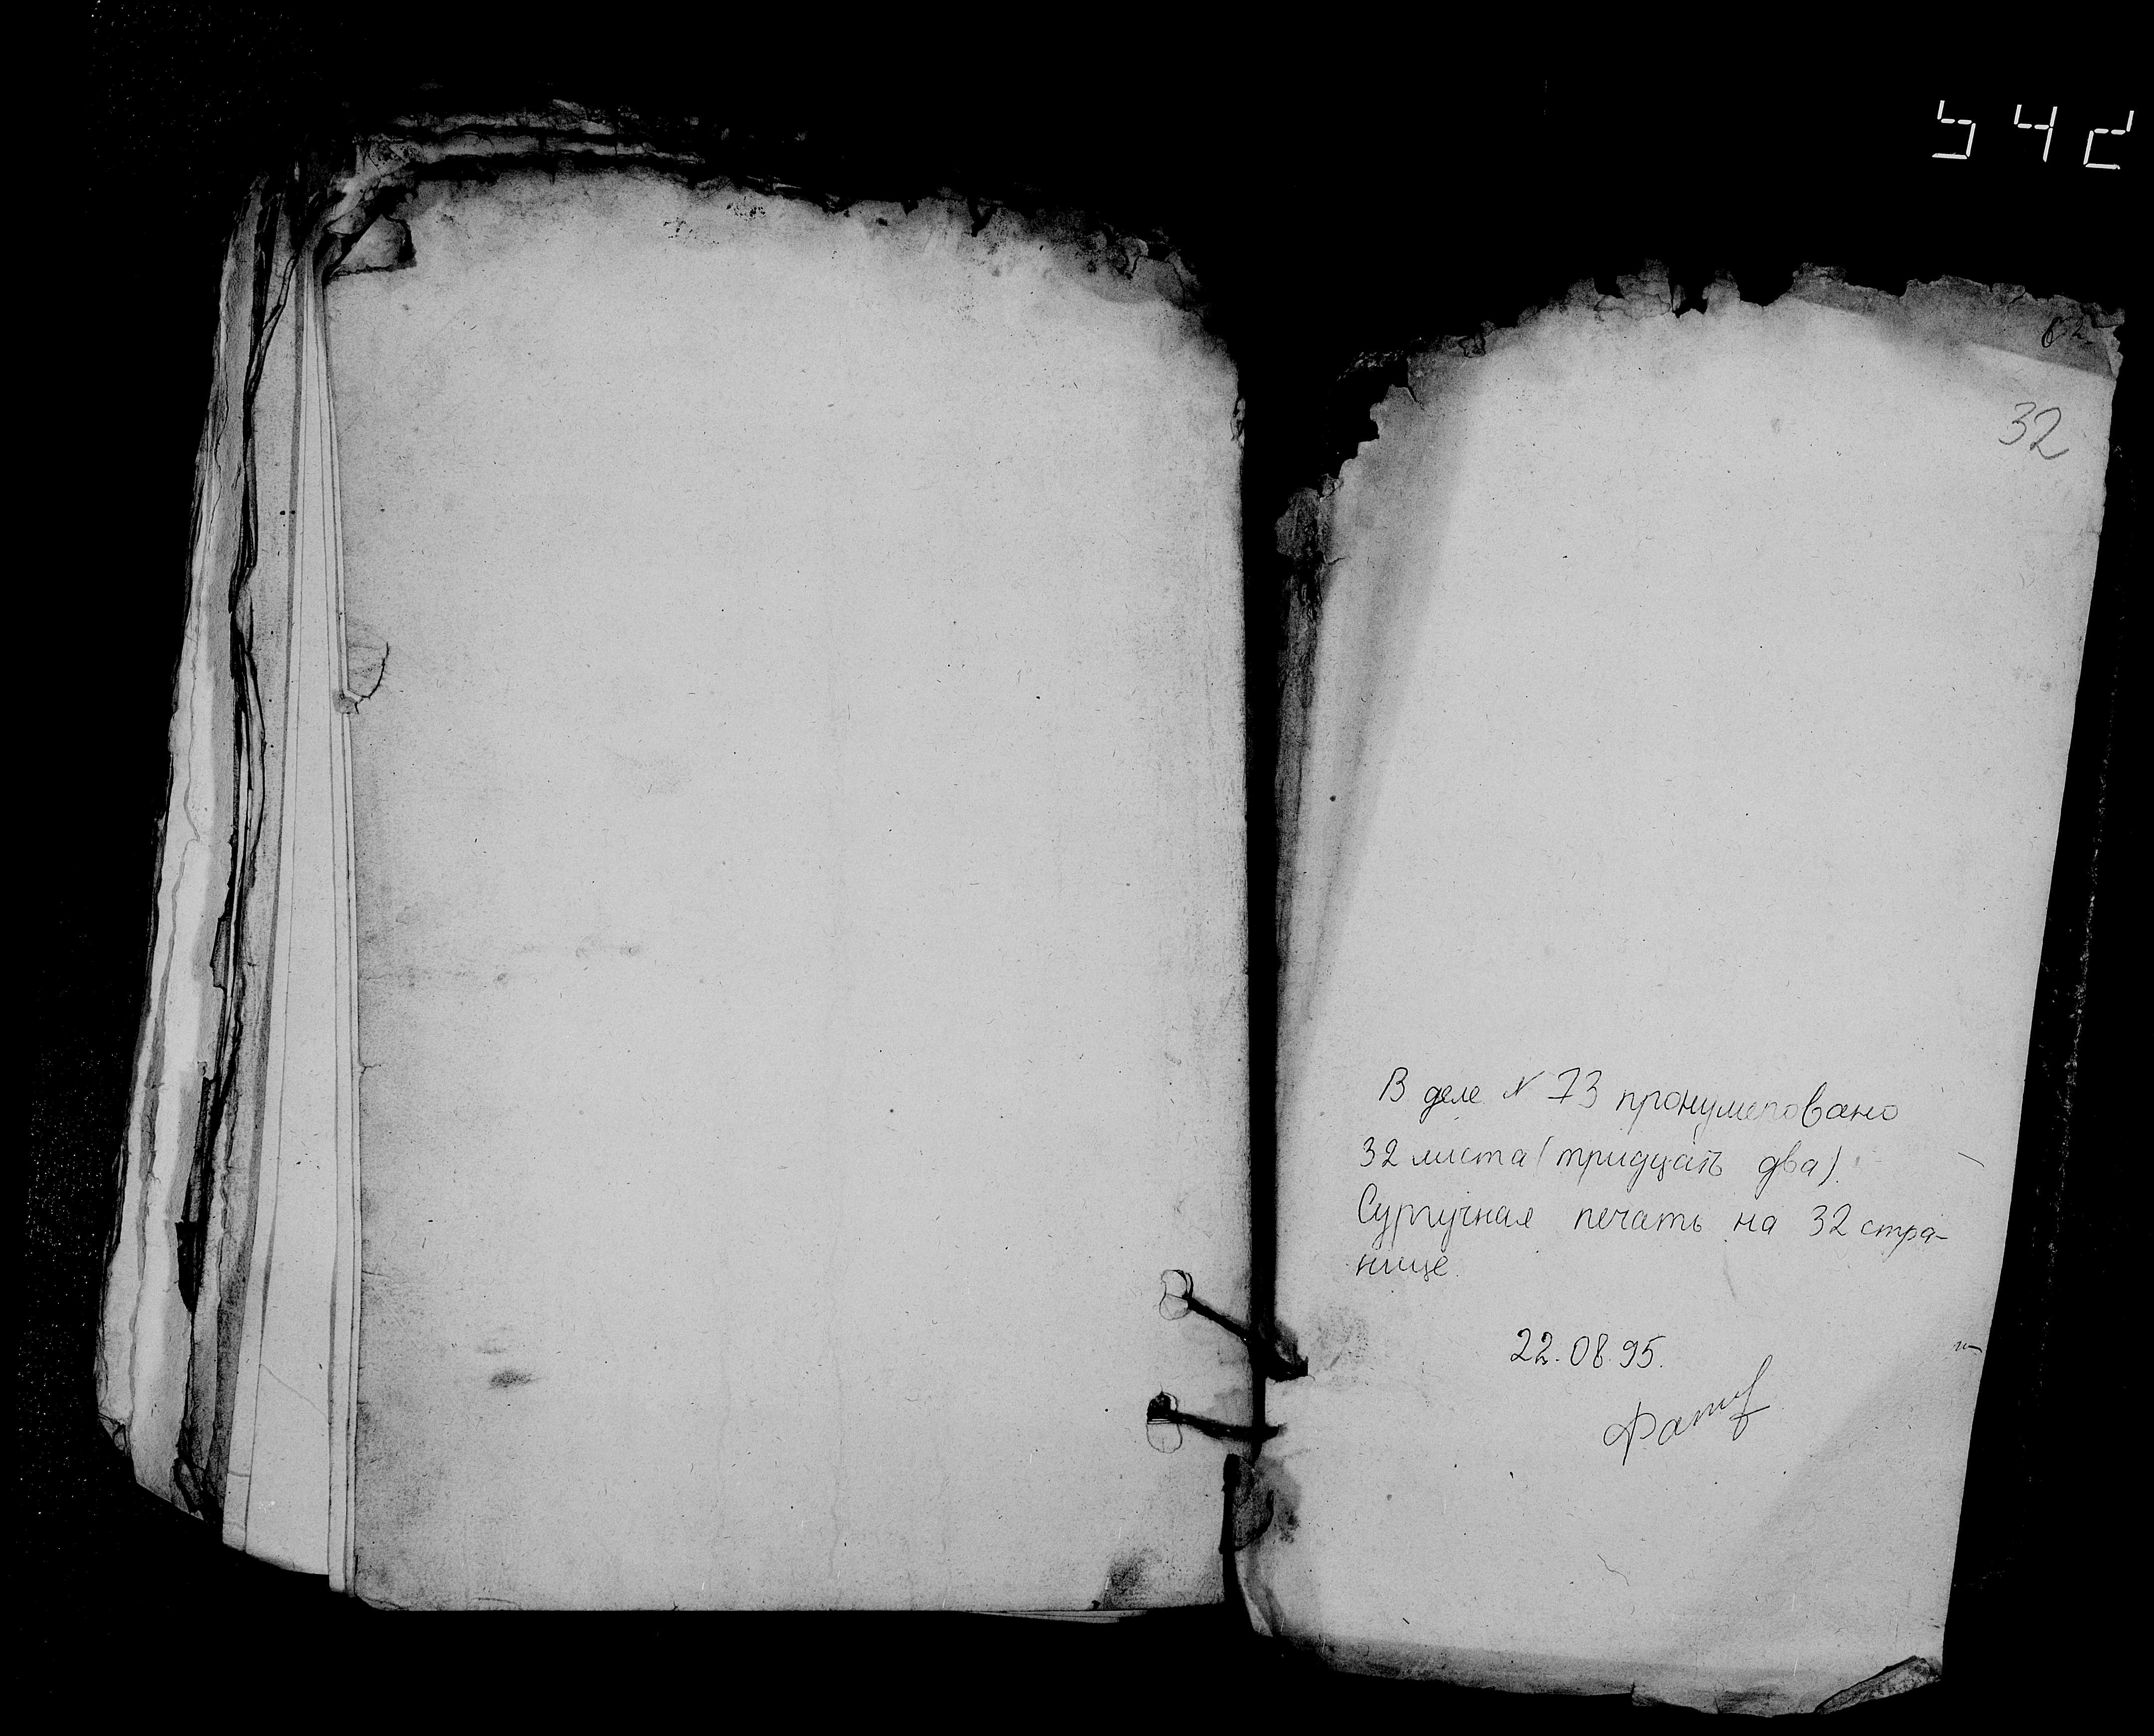 542
62.
32
В деле N 73 пронумеровано
32 листа (тридцать два).
Сургучная печать на 32 стра-
нице.
22.08.95.